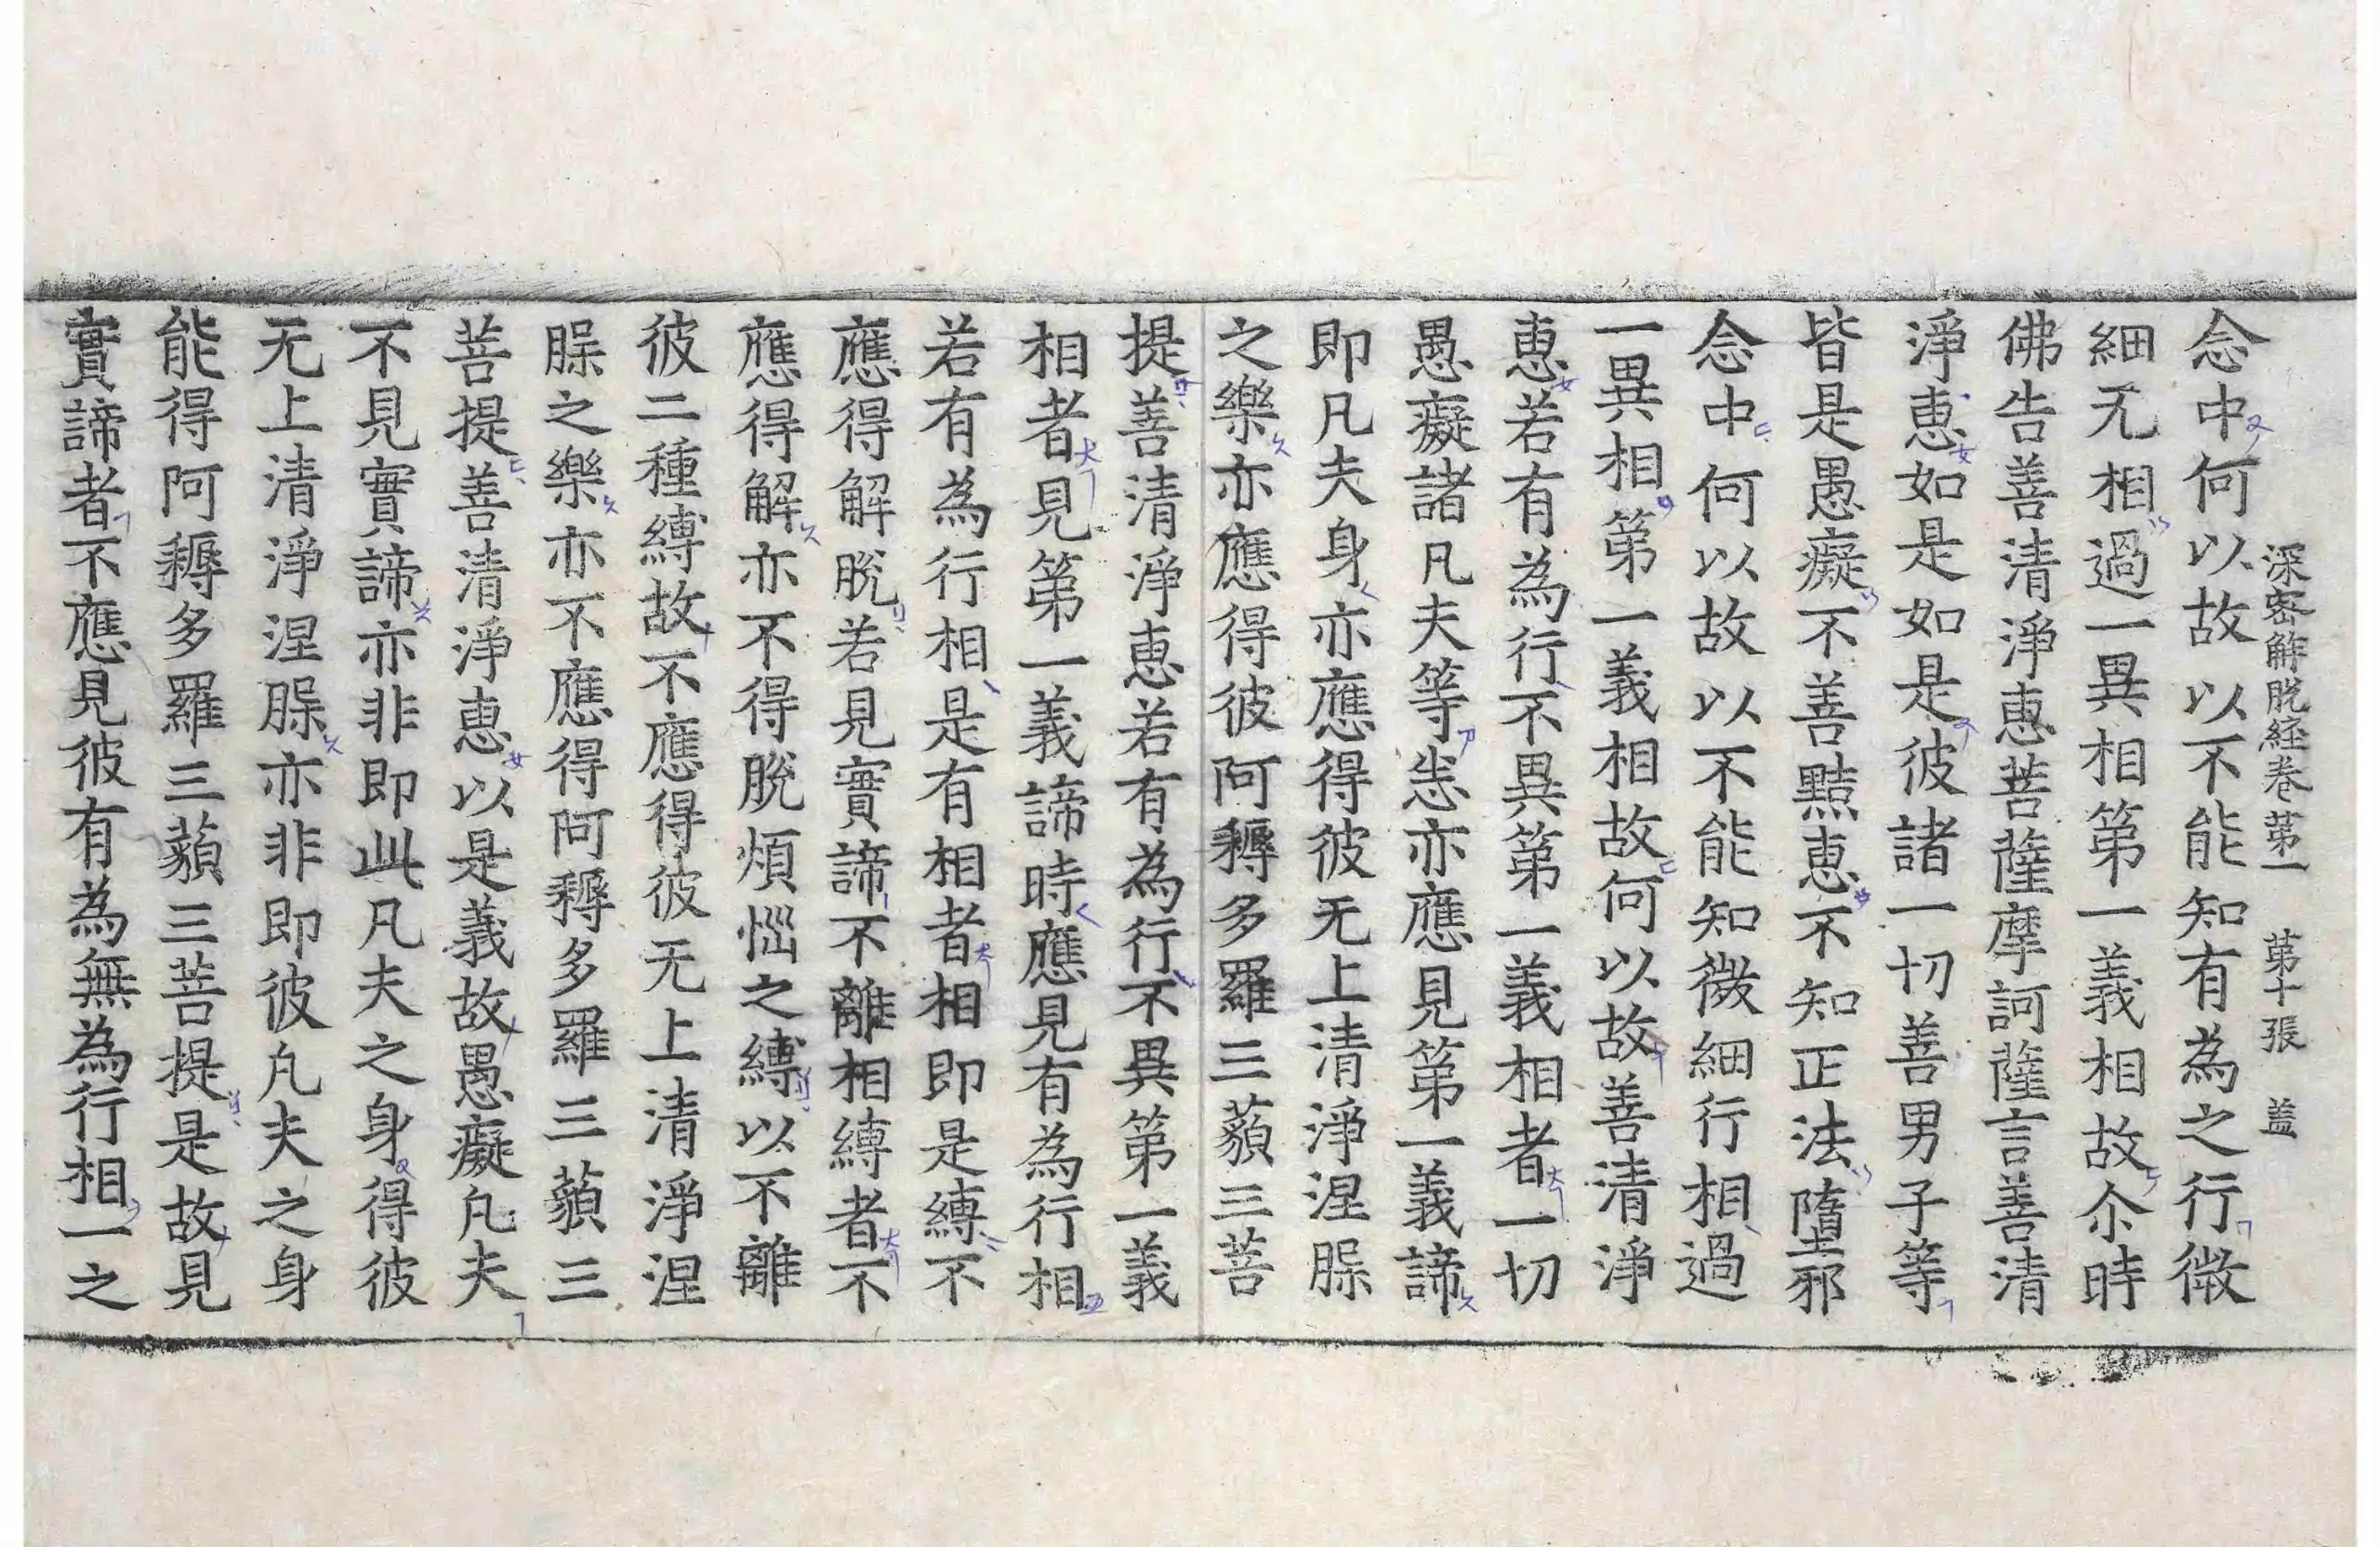 深密解脫経卷第一 第十張 盖
念中何以故以不能知有為之行微
細无相過一異相第一義相故尒時
佛告善清淨恵菩薩摩訶薩言善清
淨恵如是如是彼諸一切善男子等
皆是愚癡不善黠恵不知正法墮邪
念中何以故以不能知微細行相過
一異相第一義相故何以故善清淨
恵若有為行不異第一義相者一切
愚癡諸凡夫等悉亦應見第一義諦
即凡夫身亦應得彼无上清淨涅槃
之樂亦應得彼阿耨多羅三藐三菩
提善清淨恵若有為行不異第一義
相者見第一義諦時應見有為行相
若有為行相是有相者相即是縛不
應得解脫若見實諦不離相縛者不
應得解亦不得脫煩惱之縛以不離
彼二種縛故不應得彼无上清淨涅
槃之樂亦不應得阿耨多羅三藐三
菩提善清淨恵以是義故愚癡凡夫
不見實諦亦非即此凡夫之身得彼
无上清淨涅槃亦非即彼凡夫之身
能得阿耨多羅三藐三菩提是故見
實諦者不應見彼有為無為行相一之